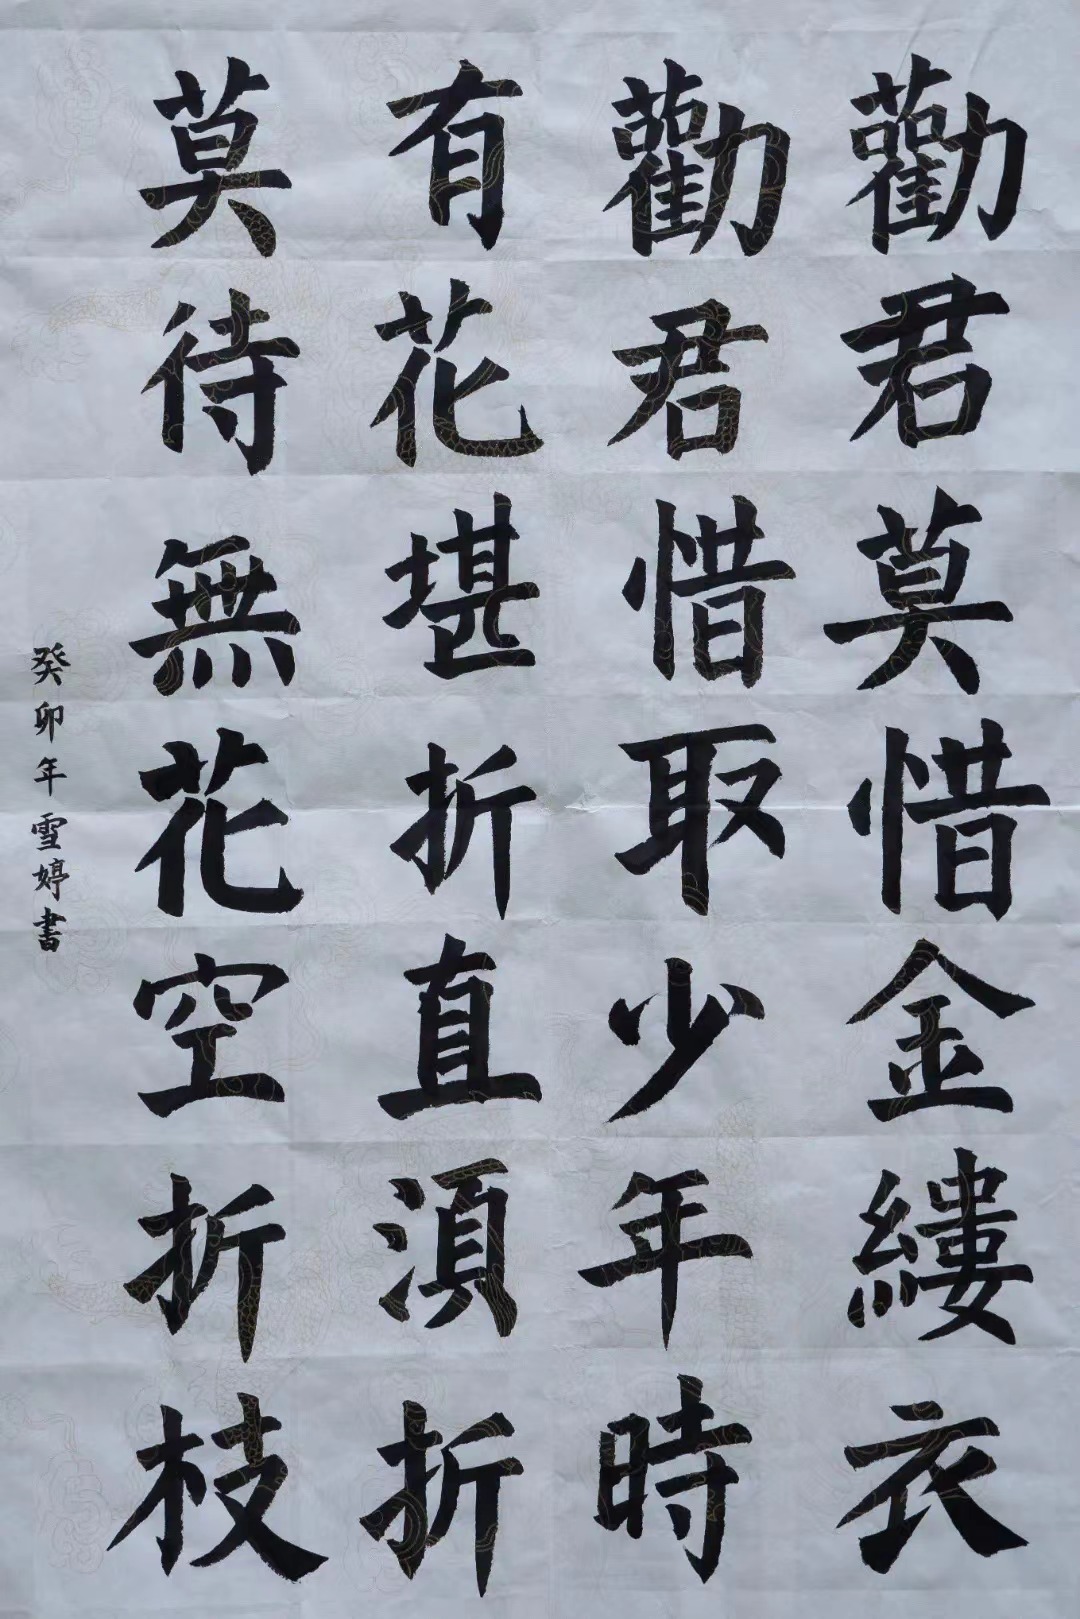 勸君莫惜金縷衣
勸君惜取少年時
有花堪折直須折
莫待無花空折枝
癸卯年雪婷書